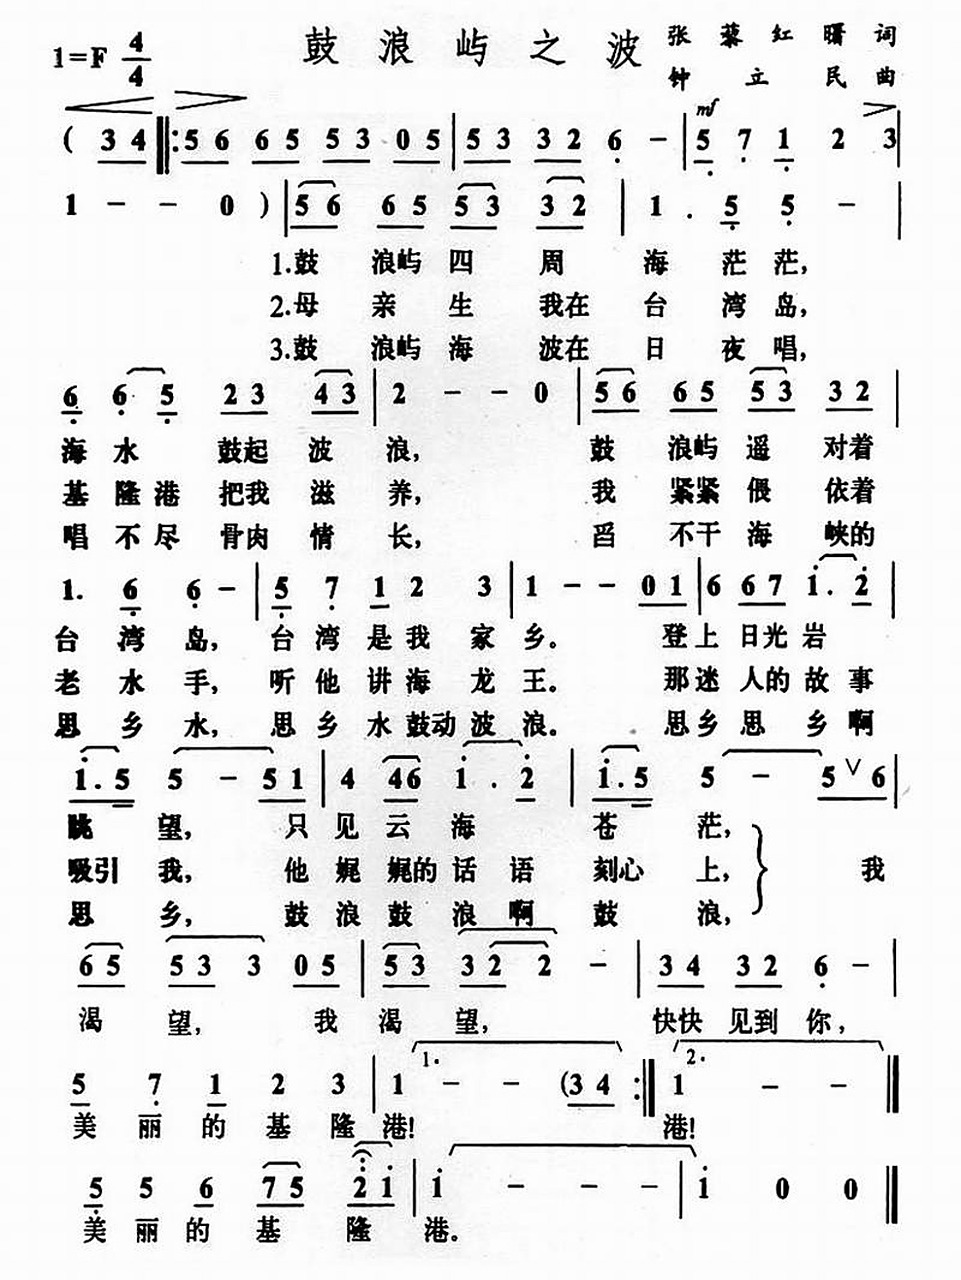 1=F 4/4 鼓浪屿之波 张藜红曙词
钟立民曲
mf
( 3 4 ‖: 5 6 6 5 5 3 0 5 | 5 3 3 2 6 - | 5 7 1 2 3 |
1 - - 0 ) | 5 6 6 5 5 3 3 2 | 1 . 5 5 - |
1.鼓 浪屿 四 周 海 茫 茫,
2.母 亲 生 我在 台 湾 岛,
3.鼓 浪屿 海 波在 日 夜 唱,
6 6 5 2 3 4 3 | 2 - - 0 | 5 6 6 5 5 3 3 2 |
海 水 鼓起 波 浪, 鼓 浪屿 遥 对着
基 隆 港 把我 滋 养, 我 紧紧 偎 依着
唱 不 尽 骨肉 情 长, 舀 不干 海 峡的
1. 6 6 - | 5 7 1 2 3 | 1 - - 0 1 | 6 6 7 1 . 2 |
台 湾 岛, 台 湾 是 我 家 乡。 登上 日光 岩
老 水 手, 听 他 讲 海 龙 王。 那迷 人的 故 事
思 乡 水, 思 乡 水 鼓动 波 浪。 思乡 思 乡 啊
1 . 5 5 - 5 1 | 4 4 6 1 . 2 | 1 . 5 5 - 5 ∨ 6 |
眺 望, 只 见 云 海 苍 茫,
吸引 我, 他 娓 娓的 话 语 刻心 上, 我
思 乡, 鼓 浪 鼓 浪 啊 鼓 浪,
6 5 5 3 3 0 5 | 5 3 3 2 2 - | 3 4 3 2 6 - |
渴 望, 我 渴 望, 快快 见到 你,
1. 2.
5 7 1 2 3 | 1 - - (3 4 :‖ 1 - - ‖
美 丽 的 基 隆 港! 港!
5 5 6 7 5 2 1 | 1 - - - | 1 0 0 ‖
美 丽 的 基 隆 港。